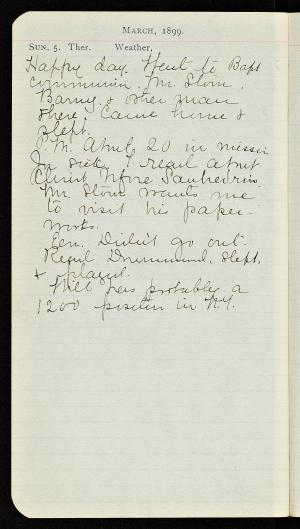 MARCH, 1899.
SUN. 5. Ther. Weather,
Happy day. Went to Bapt
communion. Mr. Stone,
Barny & other man
there. Came home &
slept.
P.M. About 20 in mission
I read about
Christ before Sanhedrin
Mr. Stone wants me
to visit his paper-
works.
Eve. Didn't go out.
Read Drummond, slept,
& played.
Will has probably a
1200 position in N.Y.